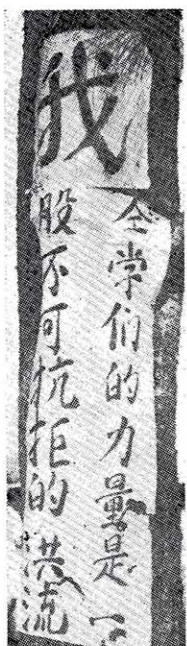 我
仝学们的力量是一
股不可抗拒的洪流